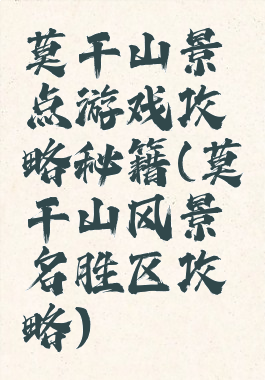 莫干山景
点游戏攻
略秘籍(莫
干山风景
名胜区攻
略)